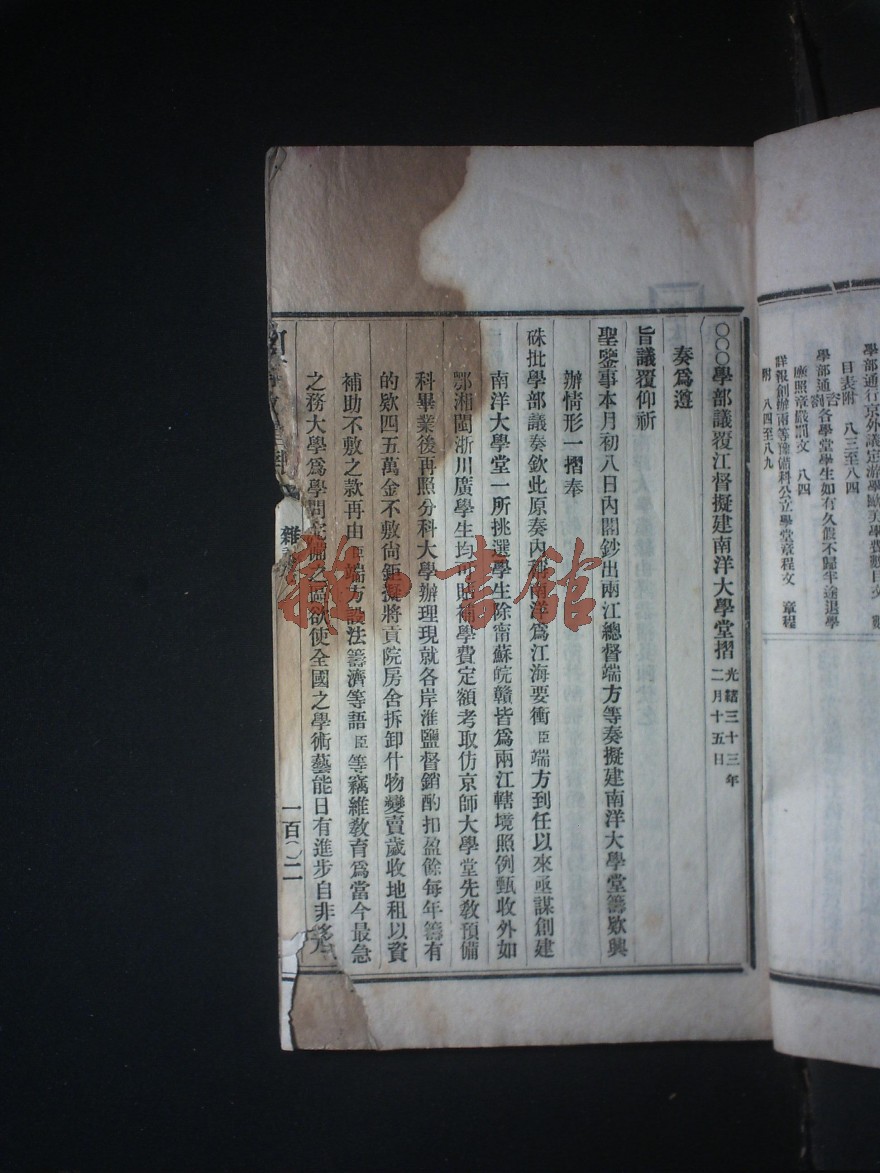 學部通行京外議定游學歐美學費數目文
目表附 八三至八四
學部通咨劄各學堂學生如有久假不歸半途退學
應照章嚴罰文 八四
詳報創辦兩等預備科公立學堂章程文 章程
附 八四至八九
○○○學部議覆江督擬建南洋大學堂摺 光緖三十三年二月十五日
奏爲遵
旨議覆仰祈
聖鑒事本月初八日內閣鈔出兩江總督端方等奏擬建南洋大學堂籌欵興
辦情形一摺奉
硃批學部議奏欽此原奏內稱南洋爲江海要衝臣端方到任以來亟謀創建
南洋大學堂一所挑選學生除甯蘇皖贛皆爲兩江轄境照例甄收外如
鄂湘閩浙川廣學生均可貼補學費定額考取仿京師大學堂先敎預備
科畢業後再照分科大學辦理現就各岸淮鹽督銷酌扣盈餘每年籌有
的欵四五萬金不敷尙鉅擬將貢院房舍拆卸什物變賣歲收地租以資
補助不敷之款再由臣端方設法籌濟等語臣等竊維敎育爲當今最急
之務大學爲學問完備之區欲使全國之學術藝能日有進步自非多
雜
一百〇二
雜·書館